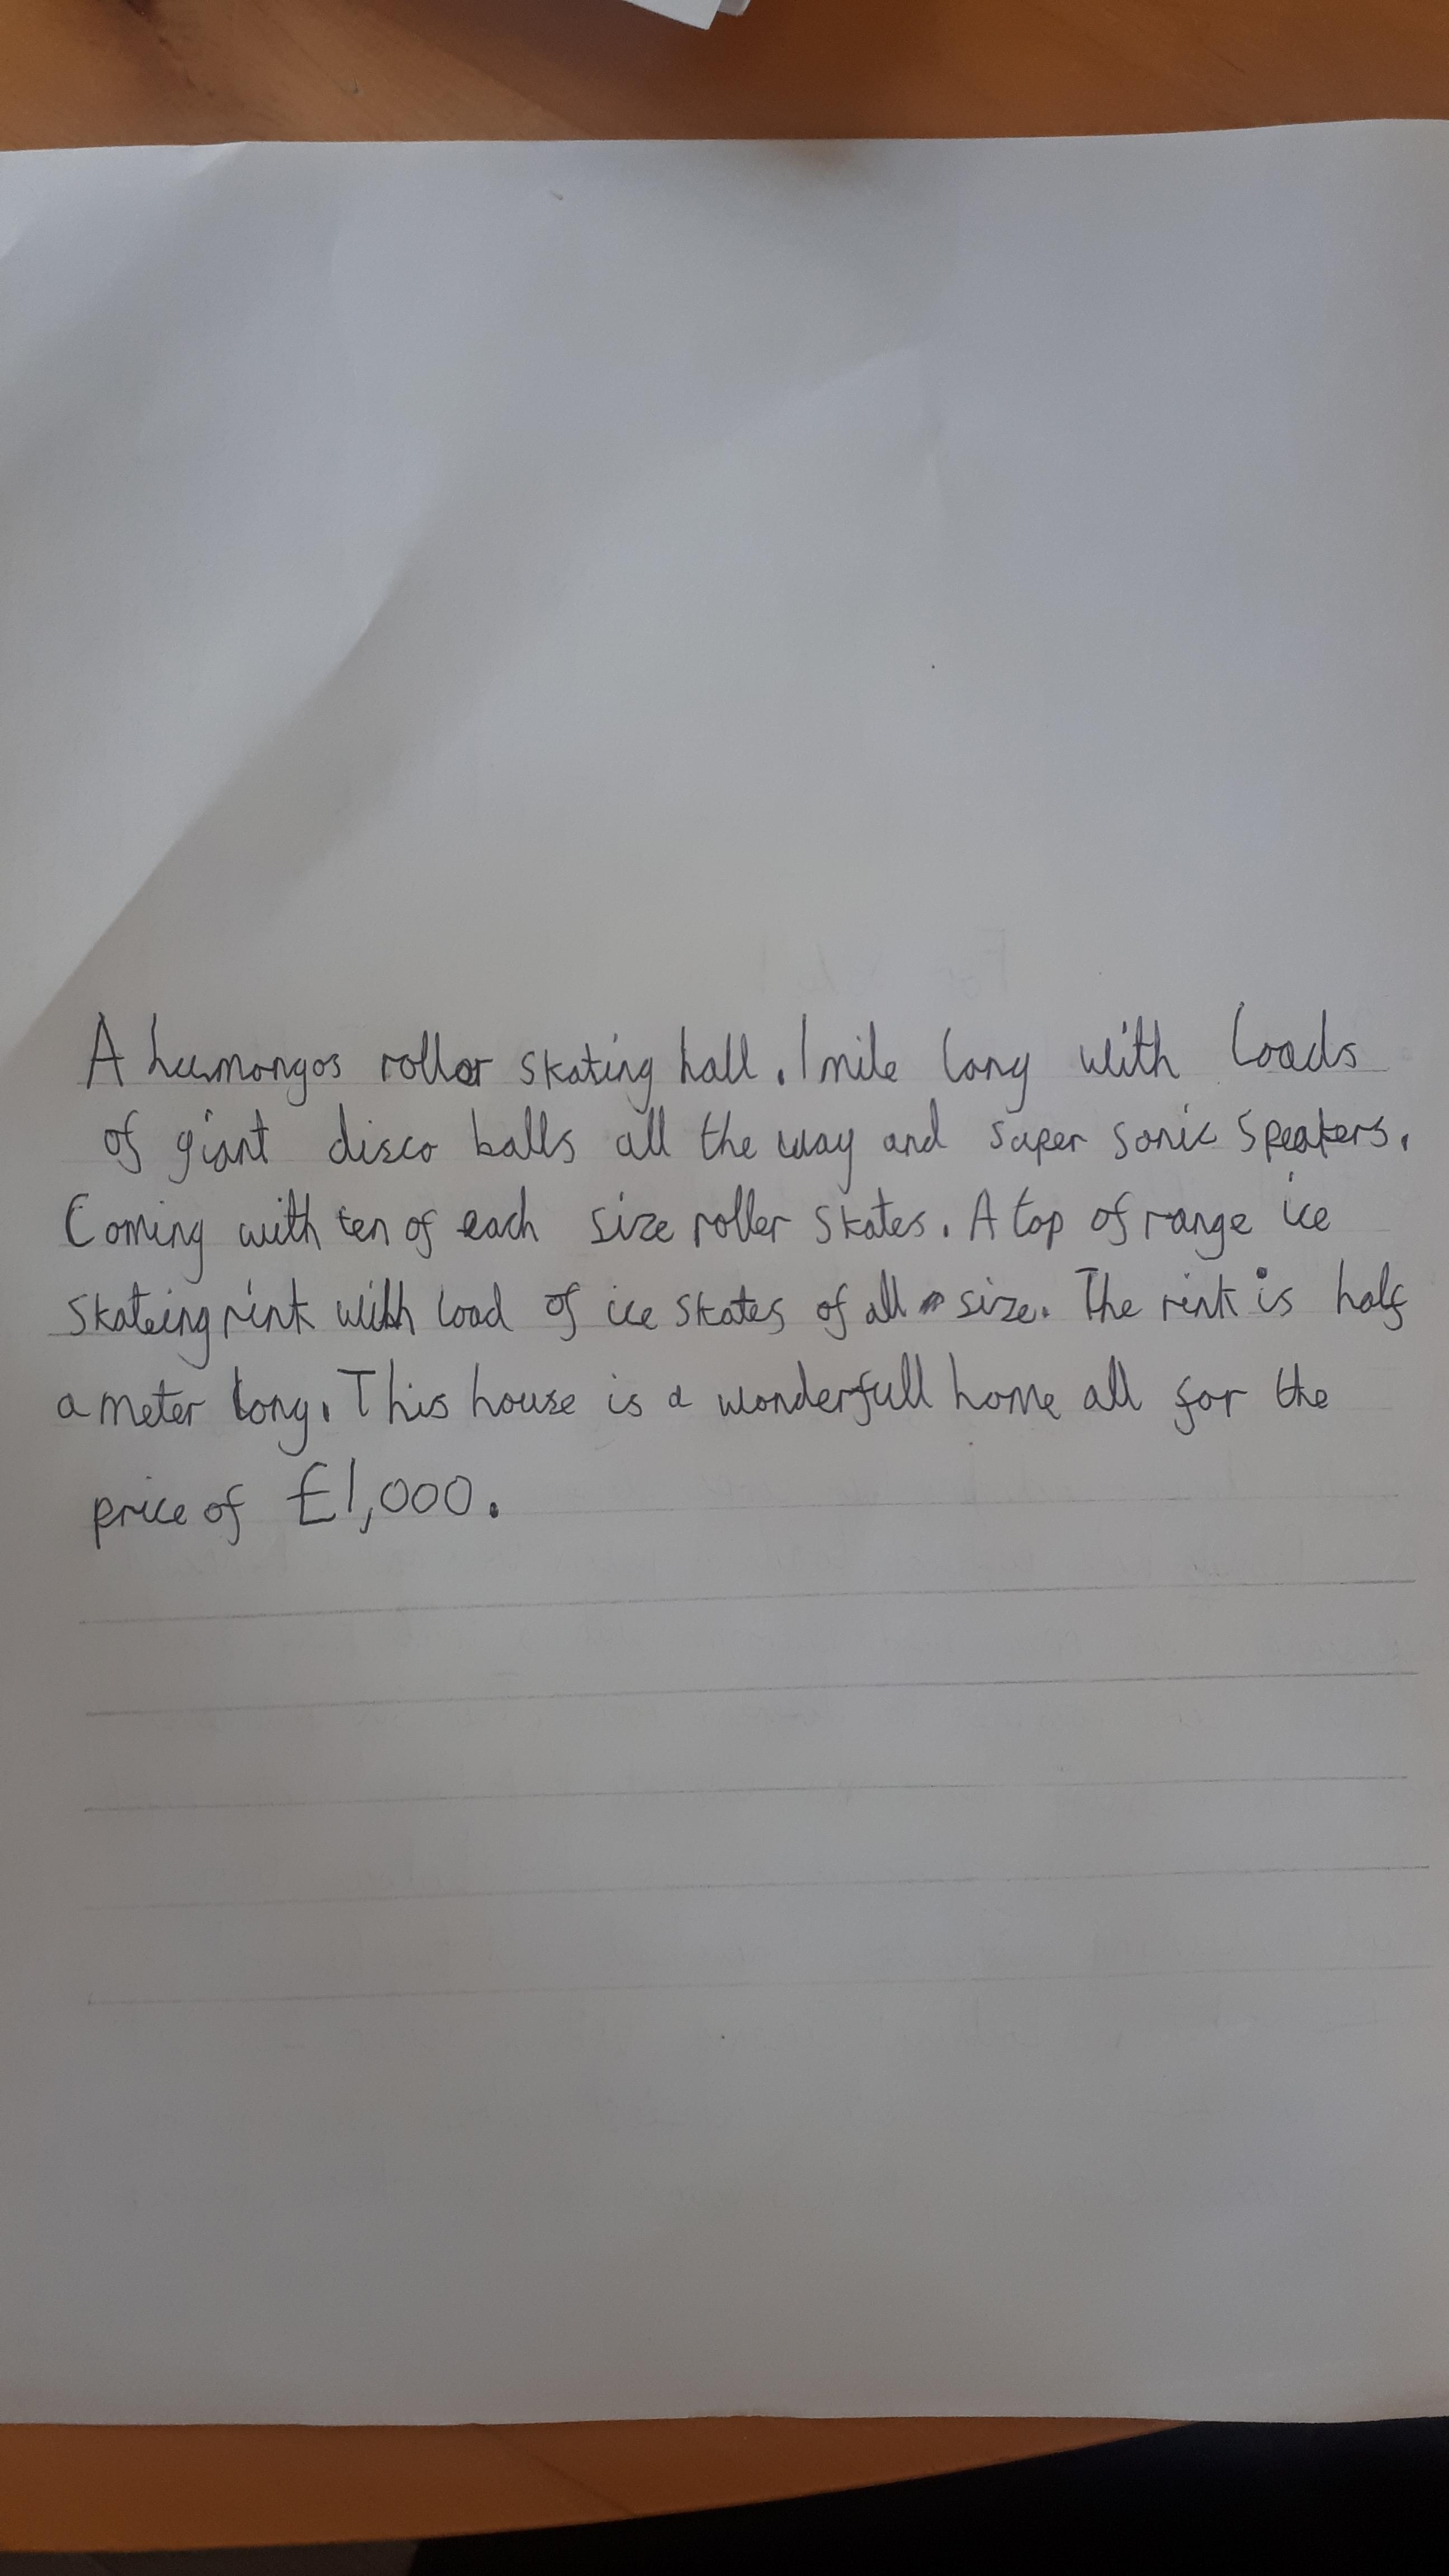 A humongos roller skating hall. 1 mile long with loads
of giant disco balls all the way and super sonic speakers.
Coming with ten of each size roller skates. A top of range ice
skateing rink with load of ice skates of all size. The rink is half
a meter long. This house is a wonderfull home all for the
price of £1,000.